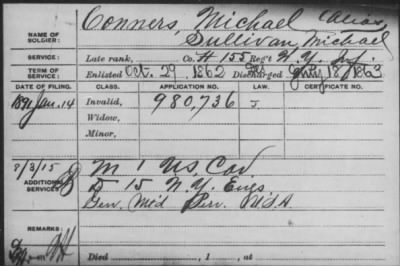 Conners, Michael Alias,
NAME OF SOLDIER: Sullivan, Michael
SERVICE: Late rank, Co. H 155 Reg't N.Y. Inf.
TERM OF SERVICE: Enlisted Oct. 29, 1862 Discharged July 18, 1863
DATE OF FILING. CLASS. APPLICATION NO. LAW. CERTIFICATE NO.
1891 Jan. 14 Invalid, 980,736 J
Widow,
Minor,
8/3/15 M 1 US Cav
ADDITIONAL SERVICES: 15 N.Y. Engs
Gen. Med Ser. U.S.A.
REMARKS:
Died , 1 , at